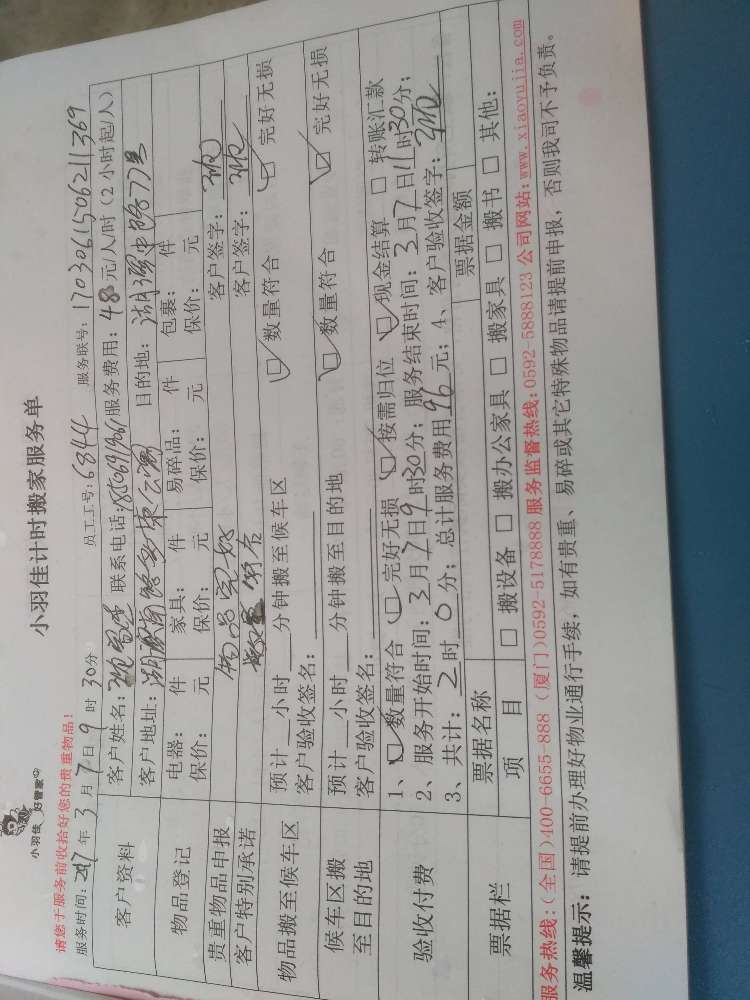 小羽佳 好管家
小羽佳计时搬家服务单
请您于服务前收拾好您的贵重物品!
服务时间: 2017年3月7日9时30分 员工工号: 6844 服务联号: 1703061506211369
客户资料
客户姓名: 联系电话: 服务费用: 48元/人/时(2小时起/人)
客户地址: 目的地:
物品登记
电器: 件 家具: 件 易碎品: 件 包裹: 件
保价: 元 保价: 元 保价: 元 保价: 元
贵重物品申报 物品完好 客户签字:
客户特别承诺 客户签字:
物品搬至候车区
预计__小时__分钟搬至候车区 数量符合 完好无损
客户验收签名:
候车区搬至目的地
预计__小时__分钟搬至目的地 数量符合 完好无损
客户验收签名:
验收付费
1、数量符合 完好无损 按需归位 现金结算 转账汇款
2、服务开始时间: 3月7日9时30分; 服务结束时间: 3月7日11时30分;
3、共计: 2时0分; 总计服务费用96元; 4、客户验收签字:
票据栏
票据名称 票据金额
项目 搬设备 搬办公家具 搬家具 搬书 其他:
服务热线: (全国)400-6655-888 (厦门)0592-5178888 服务监督热线: 0592-5888123 公司网站: www.xiaoyujia.com
温馨提示: 请提前办理好物业通行手续, 如有贵重、易碎或其它特殊物品请提前申报, 否则我司不予负责。